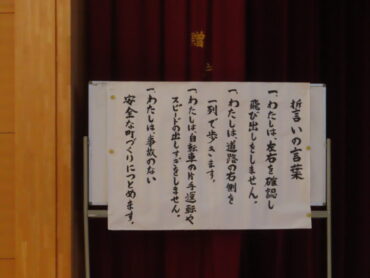 贈
誓いの言葉
一、わたしは、左右を確認し
飛び出しをしません。
一、わたしは、道路の右側を
一列で歩きます。
一、わたしは、自転車の片手運転や
スピードの出しすぎをしません。
一、わたしは、事故のない
安全な町づくりにつとめます。